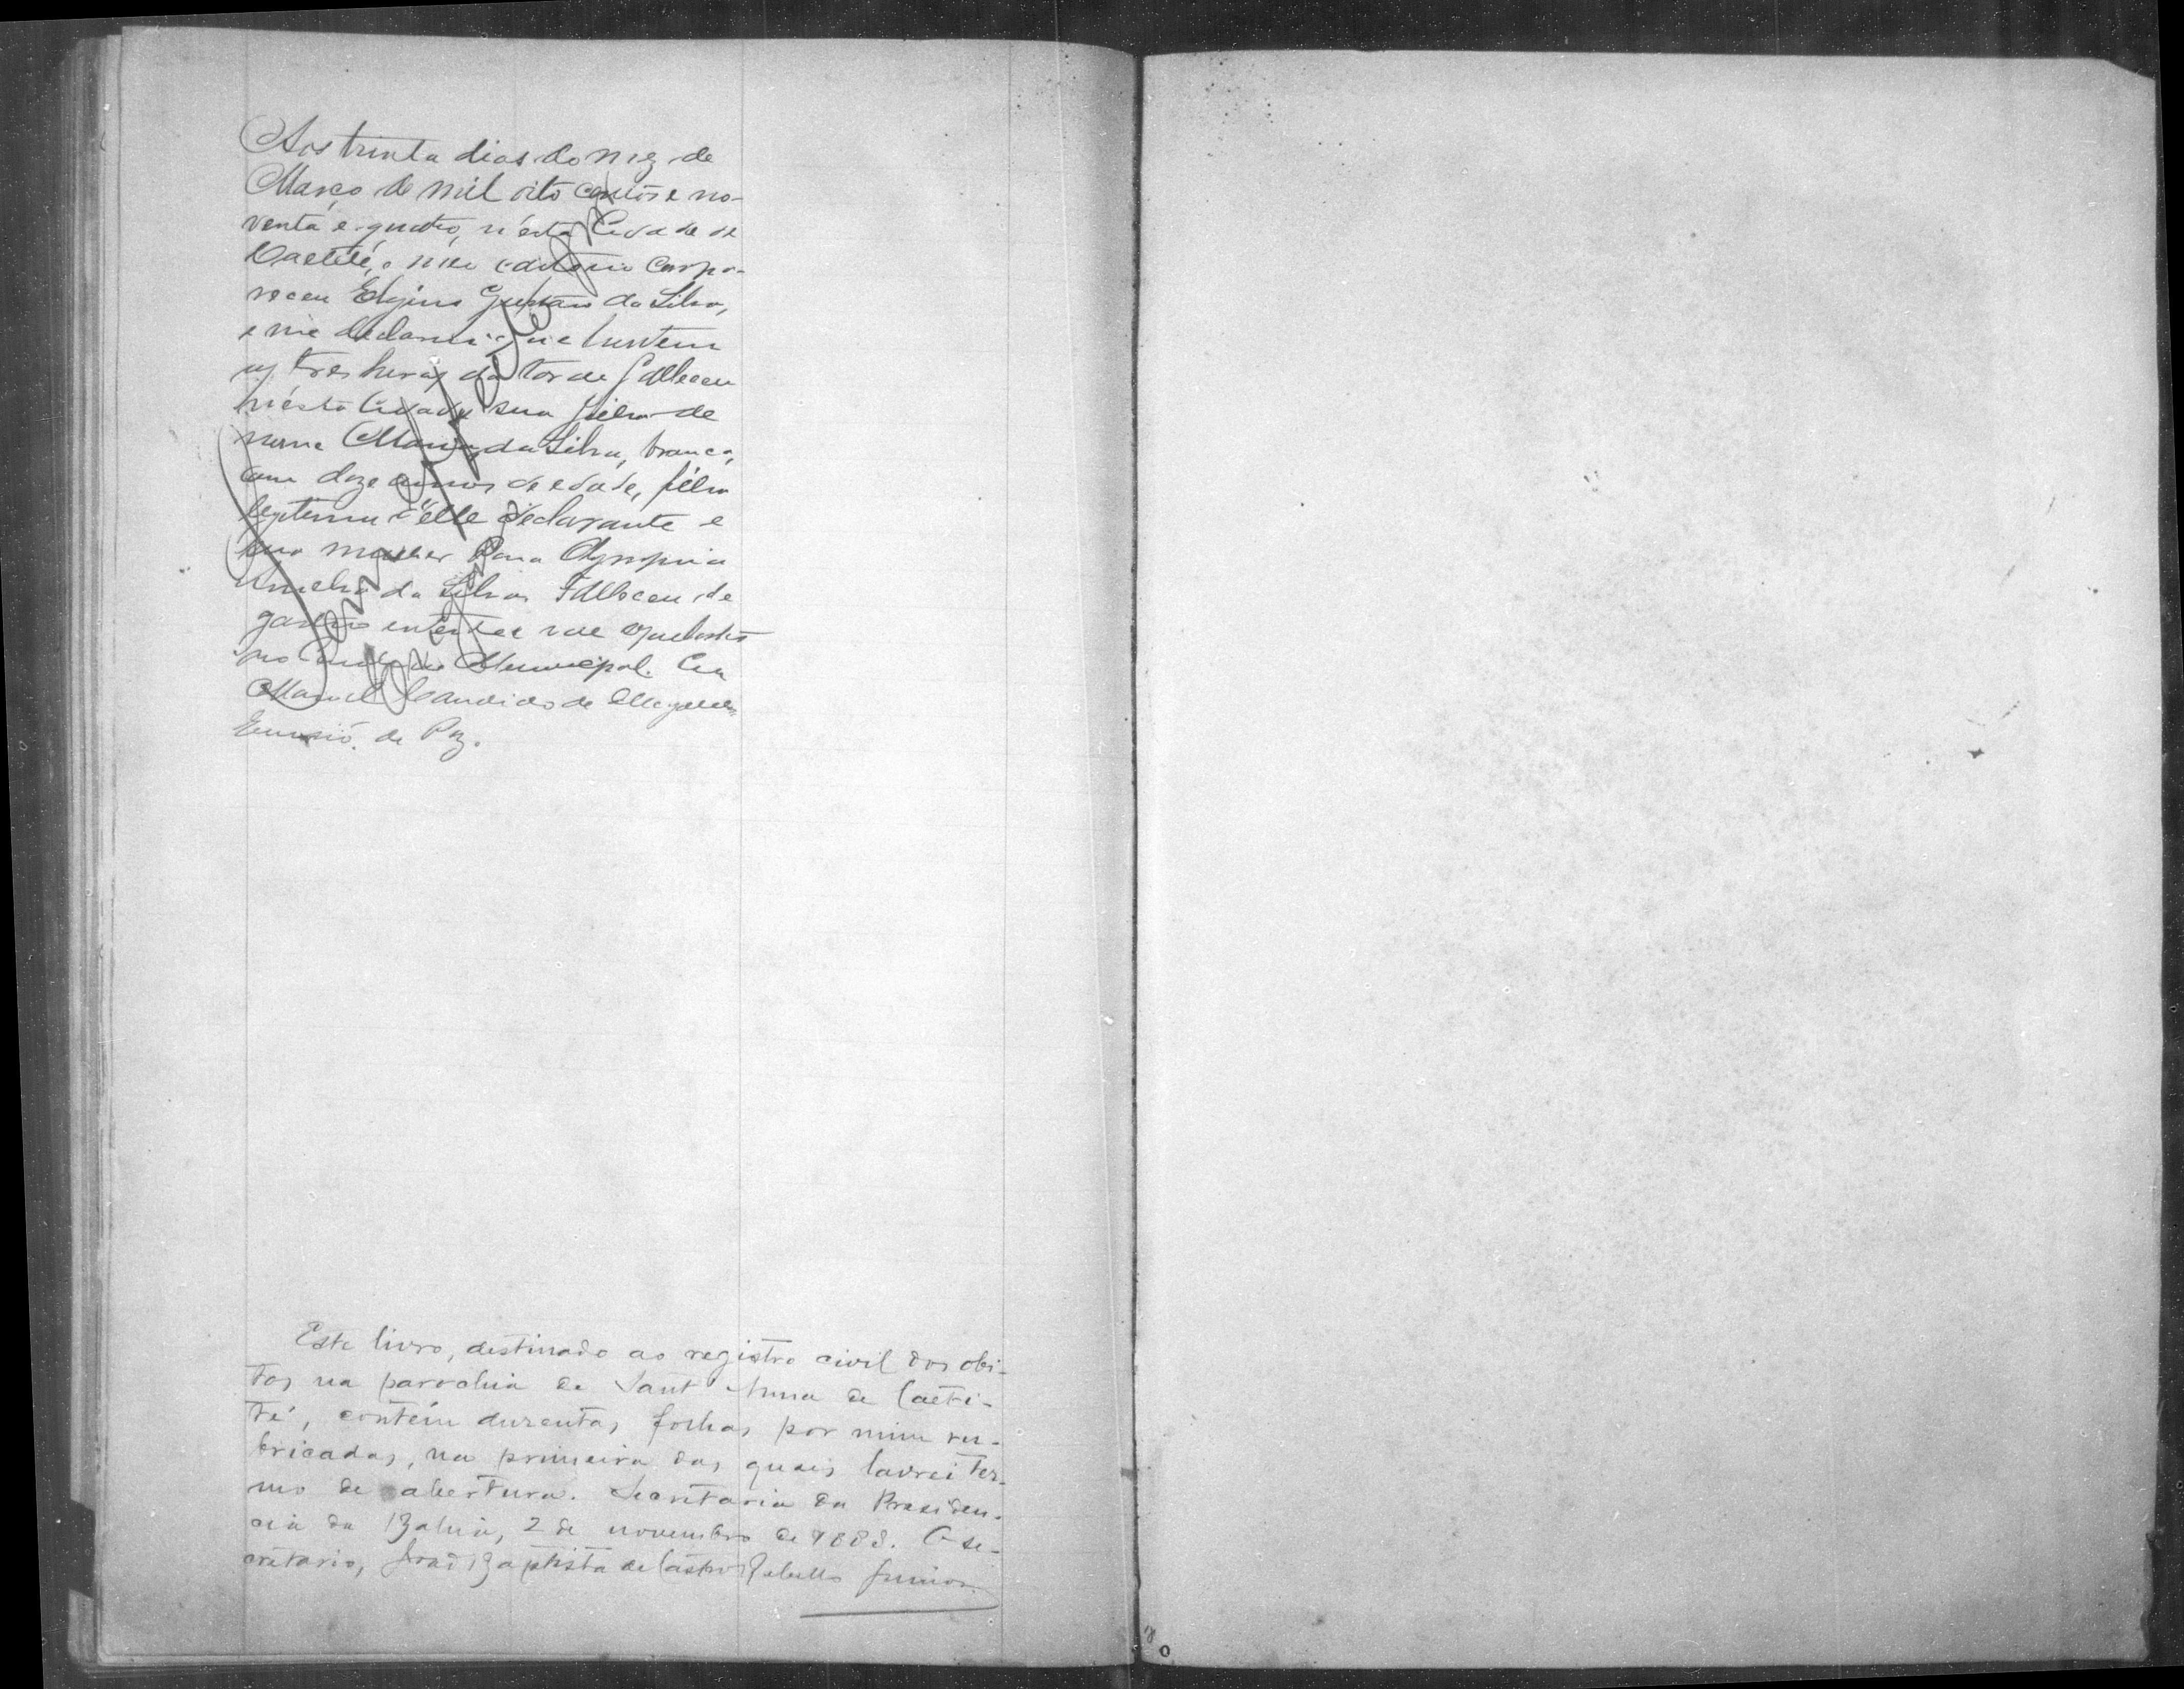 Aos trinta dias do mez de
Março de mil oito centos e no-
venta e quatro, n'esta Cidade de
Caetité, e meu cartorio compa-
receu Edgino Gustavo da Silva,
e me declarou que hontem
as tres horas da tarde falleceu
n'esta Cidade sua filha de
nome Maria da Silva, branca,
com doze annos de edade, filha
legitima d'elle declarante e
sua mulher Dona Olympia
da Silva. Falleceu de
no Municipal. Eu
Manoel Candido de
Escrivão de Paz.
Este livro, destinado ao registro civil dos obi-
tos na parochia de Sant'Anna de Caeti-
té, contém duzentas folhas por mim ru-
bricadas, na primeira das quaes lavrei ter-
mo de abertura. Secretaria da Presiden-
cia da Bahia, 2 de novembro de 1888. O se-
cretario, João Baptista de Castro Rebello Junior